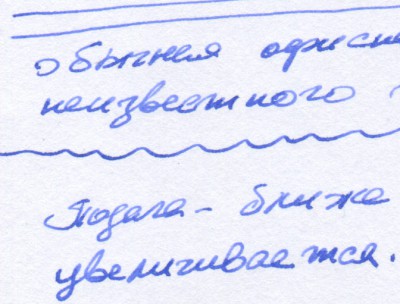 обычная офисн
неизвестного
Подача - ближе
увеличивается.